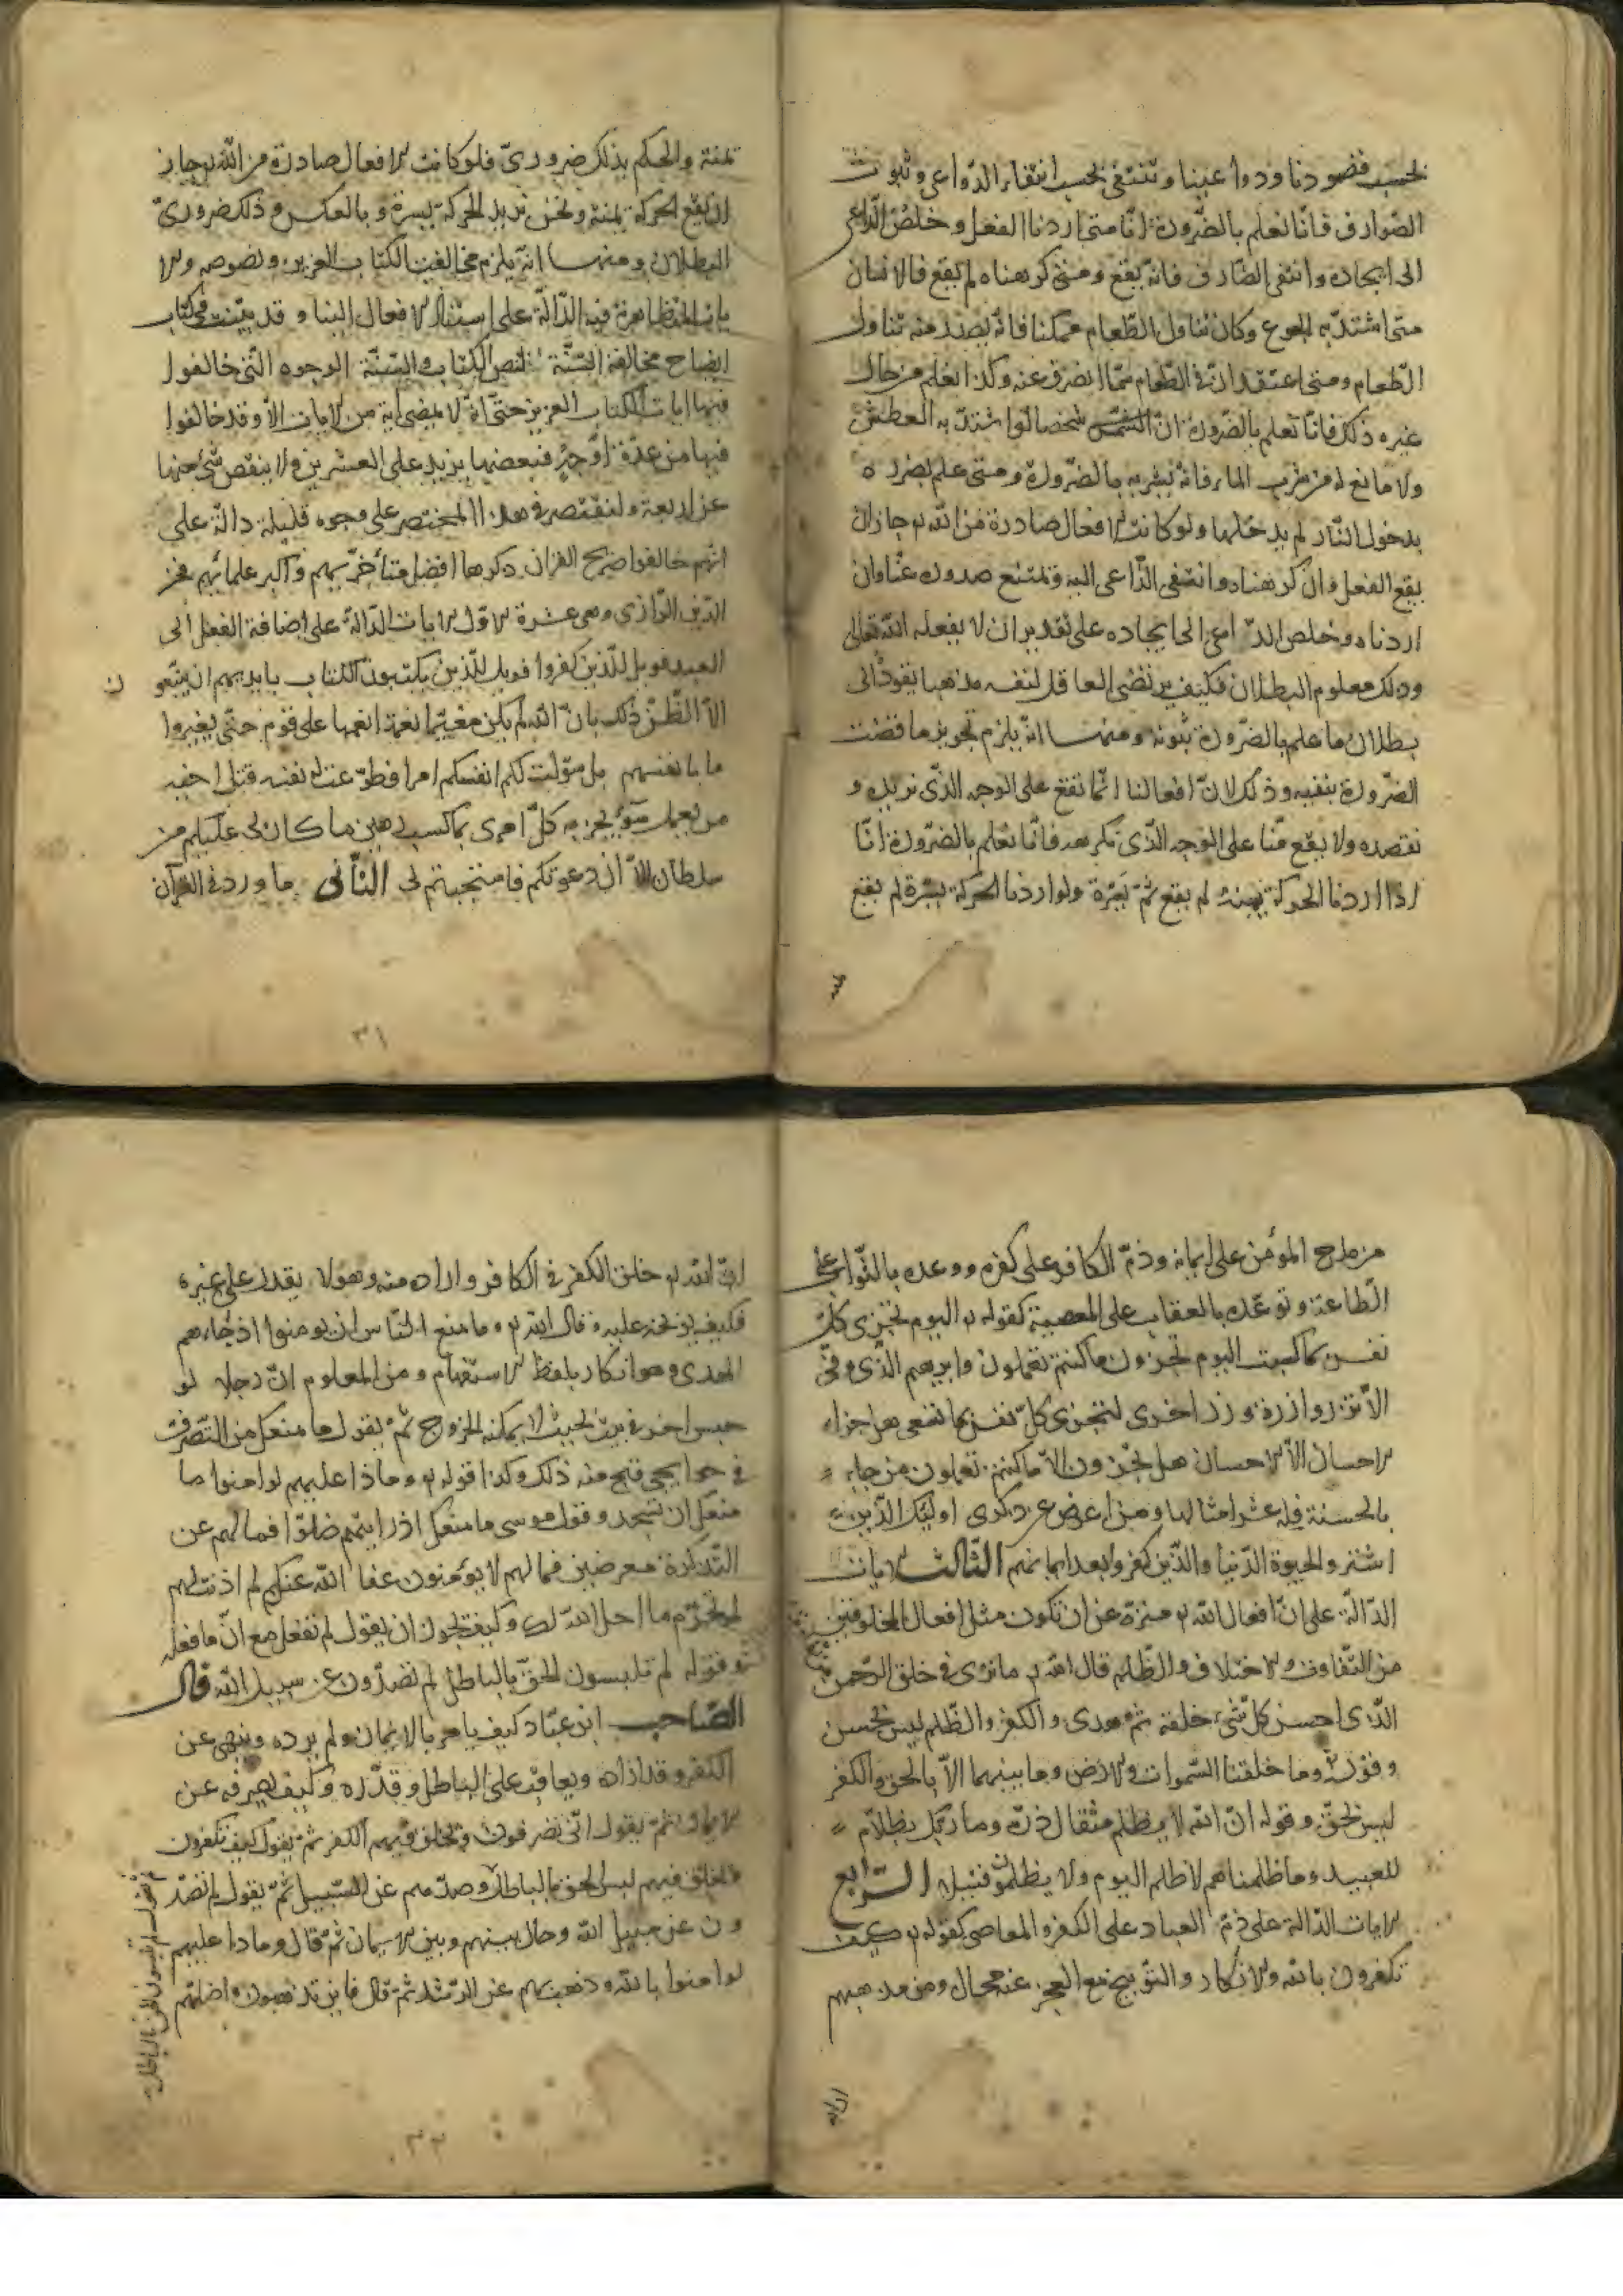 بحسب قصودنا ودواعينا وتنتفي بحسب انتفاء الدّواعي وثبوت
الصّوارف فانّا نعلم بالضّرورة انّا متى اردنا الفعل وخلص الدّاعي
الى ايجاده وانتفى الصّارف فانّه يقع ومتى كرهناه لم يقع فالانسان
متى اشتدّ به الجوع وكان تناول الطّعام ممكنا فانّه يصدر منه تناول
الطّعام ومتى اعتقد انّ في الطّعام سمّا انصرف عنه وكذا نعلم من حال
غيره ذلك فانّا نعلم بالضّرورة انّ شخصا لو اشتدّ به العطش
ولا مانع له من شرب الماء فانّه يشربه بالضّرورة ومتى علم بضرره
بدخول النّار لم يدخلها ولو كانت الافعال صادرة من الله تع جاز ان
يقع الفعل وان كرهناه وانتفى الدّاعي اليه ويمتنع صدوره عنّا وان
اردناه وخلص الدّاعي الى ايجاده على تقدير ان لا يفعله الله تعالى
وذلك معلوم البطلان فكيف يرتضي العاقل لنفسه مذهبا يقوده الى
بطلان ما علم بالضّرورة ثبوته ومنها انّه يلزم تجويز ما قضت
الضّرورة بنفيه وذلك لانّ افعالنا انّما تقع على الوجه الذّي نريده و
نقصده ولا يقع منّا على الوجه الذّي نكرهه فانّا نعلم بالضّرورة انّا
اذا اردنا الحركة يمنة لم يقع يسرة ولو اردنا الحركة يسرة لم يقع
يمنة والحكم بذلك ضروريّ فلو كانت الافعال صادرة من الله تع جاز
ان يقع الحركة يمنة ونحن نريد الحركة يسرة وبالعكس وذلك ضروريّ
البطلان ومنها انّه يلزم مخالفة الكتاب العزيز ونصوصه والا
يات المتظاهرة فيه الدّالّة على استناد الافعال الينا وقد بيّنت في كتاب
ايضاح مخالفة السّنّة لنص الكتاب والسّنّة الوجوه الّتي خالفوا
فيها ايات الكتاب العزيز حتّى انّه لا يمضي اية من الايات الاّ وقد خالفوا
فيها من عدّة اوجه فبعضها يزيد على العشرين ولا ينقص شئ منها
عن اربعة ولنقتصر في هذا المختصر على وجوه قليلة دالّة على
انّهم خالفوا صريح القران ذكرها افضل متأخّريهم واكبر علمائهم فخر
الدّين الرّازي وهي عشرة الاوّل الايات الدّالّة على اضافة الفعل الى
العبد فويل للّذين كفروا فويل للّذين يكتبون الكتاب بايديهم ان يتّبعو ن
الاّ الظّنّ ذلك بانّ الله لم يكن مغيّرا نعمة انعمها على قوم حتّى يغيروا
ما بانفسهم بل سوّلت لكم انفسكم امرا فطوّعت له نفسه قتل اخيه
من يعمل سوءً يجز به كلّ امرئ بما كسب رهين ما كان لي عليكم من
سلطان الاّ ان دعوتكم فاستجبتم لي الثّاني ما ورد في القرآن
٣١
من مدح المؤمن على ايمانه وذمّ الكافر على كفره ووعده بالثّواب على
الطّاعة وتوعّده بالعقاب على المعصية كقوله تع اليوم تجزى كلّ
نفس بما كسبت اليوم تجزون ما كنتم تعملون وابرهيم الذّي وفّى
الاّ تزر وازرة وزر اخرى لتجزى كلّ نفس بما تسعى هل جزاء
الاحسان الاّ الاحسان هل تجزون الاّ ما كنتم تعملون من جاء
بالحسنة فله عشر امثالها ومن اعرض عن ذكرى اولئك الّذين
اشتروا الحيوة الدّنيا والّذين كفروا بعد ايمانهم الثّالث الايات
الدّالّة على انّ افعال الله تع منزّهة عن ان تكون مثل افعال المخلوقين
من التّفاوت والاختلاف والظّلم قال الله تع ما ترى في خلق الرّحمن
الّذي احسن كلّ شئ خلقه ثمّ هدى والكفر والظّلم ليس بحسن
وقوله وما خلقنا السّموات والارض وما بينهما الاّ بالحق والكفر
ليس بحقّ وقوله انّ الله لا يظلم مثقال ذرّة وما ربّك بظلاّم
للعبيد وما ظلمناهم لا ظلم اليوم ولا يظلمون فتيلا الرّابع
الايات الدّالة على ذمّ العباد على الكفر والمعاصي كقوله تع كيف
تكفرون بالله والانكار والتّوبيخ مع العجز عنه محال ومن مذهبهم
انّ الله تع خلق الكفر في الكافر واراده منه وهو لا يقدر على غيره
فكيف يوبّخه عليه وقال الله تع وما منع النّاس ان يومنوا اذ جاءهم
الهدى وهو انكار بلفظ الاستفهام ومن المعلوم انّ رجلا لو
حبس اخر في بيت بحيث لا يمكنه الخروج ثمّ يقول ما منعك من التّصرّف
في حوايجي قبح منه ذلك وكذا قوله تع وما ذا عليهم لو امنوا ما
منعك ان تسجد وقول موسى ما منعك اذ رايتهم ضلّوا فما لهم عن
التّذكرة معرضين فما لهم لا يؤمنون عفا الله عنك لم اذنت لهم
لم تحرّم ما احلّ الله لك وكيف يجوز ان يقول لم تفعل مع انّه ما فعله
وقوله لم تلبسون الحقّ بالباطل لم تصدّون عن سبيل الله قال
الصّاحب ابن عبّاد كيف يامر بالايمان ولم يرده وينهى عن
الكفر وقد اراده ويعاقب على الباطل وقدّره وكيف يصرفه عن
الايمان ثمّ يقول انّى تصرفون ويخلق فيهم الكفر ثمّ يقول كيف تكفرون
وخلق فيهم لبس الحق بالباطل وصدّهم عن السّبيل ثمّ يقول لم تصدّ
ون عن سبيل الله وحال بينهم وبين الايمان ثمّ قال وماذا عليهم
لو امنوا بالله وذهب بهم عن الرّشد ثمّ قال فاين تذهبون واضلّهم
ثمّ يقول لم تلبسون الحق بالباطل
٣٢